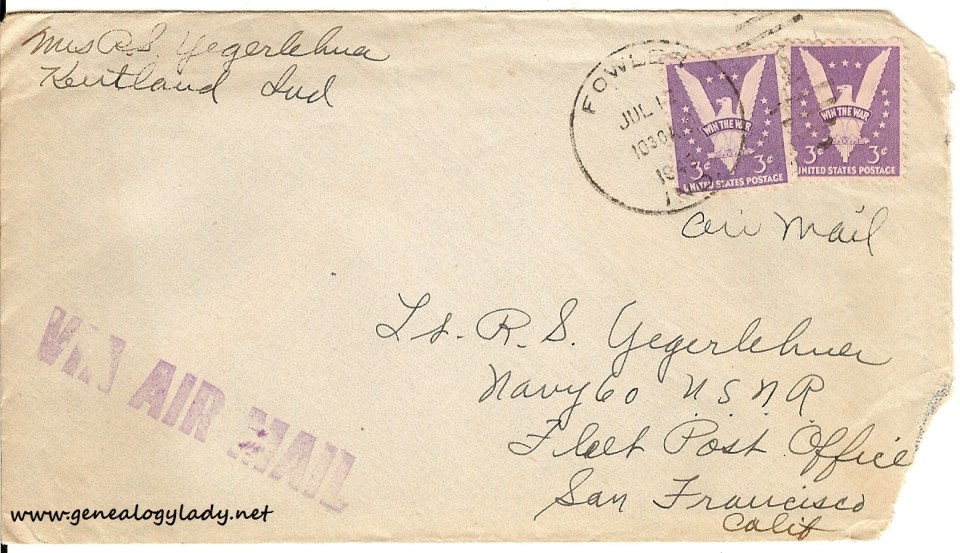 Mrs R.S. Yegerlehner
Kentland Ind
FOWLER
JUL 17
1030A
19
WIN THE WAR
3¢ 3¢
UNITED STATES POSTAGE
WIN THE WAR
3¢ 3¢
UNITED STATES POSTAGE
Air Mail
Lt. R. S. Yegerlehner
Navy 60 U S N R
Fleet Post Office
San Francisco
Calif
VIA AIR MAIL
www.genealogylady.net